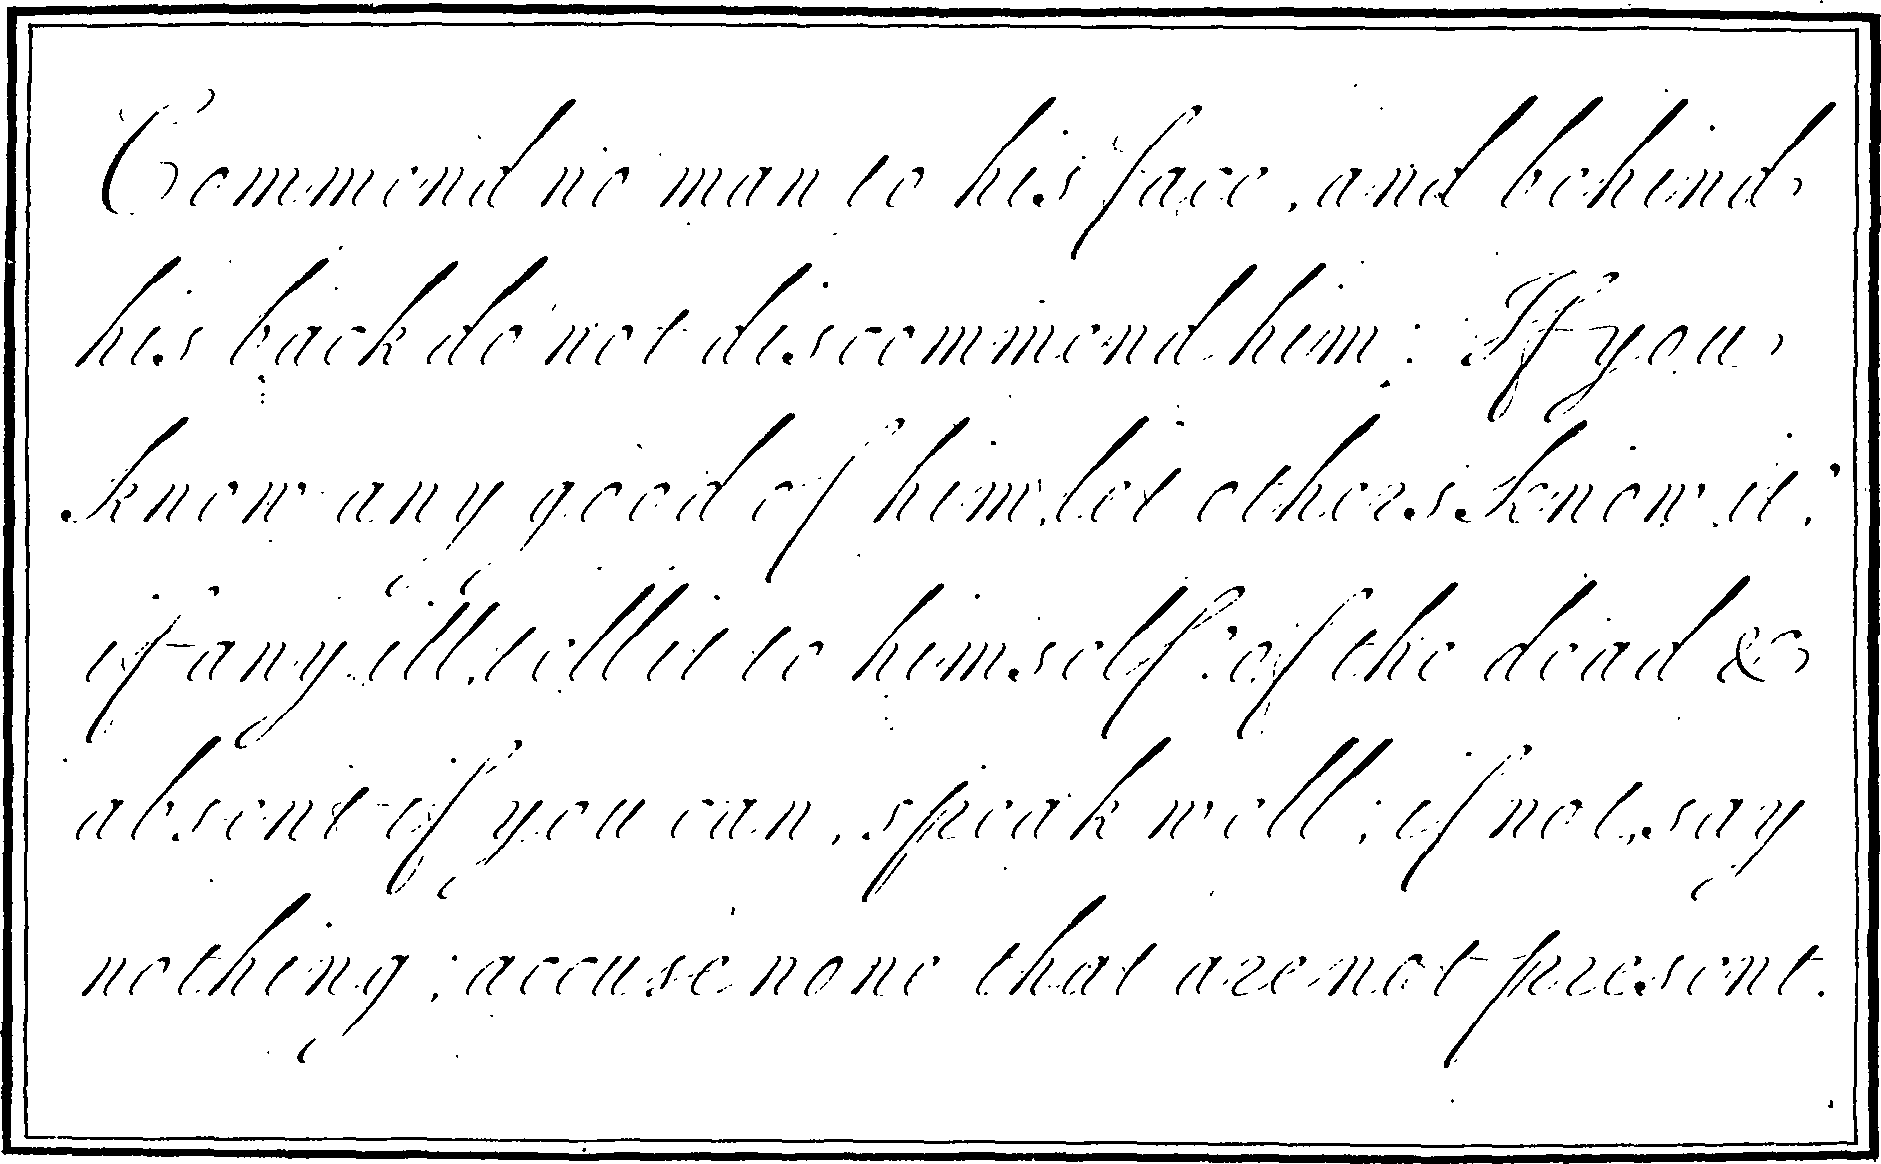 Commend no man to his face, and behind
his back do not discommend him: If you
know any good of him, let others know it;
if any ill, tell it to himself: of the dead &
absent if you can, speak well; if not, say
nothing; accuse none that are not present.